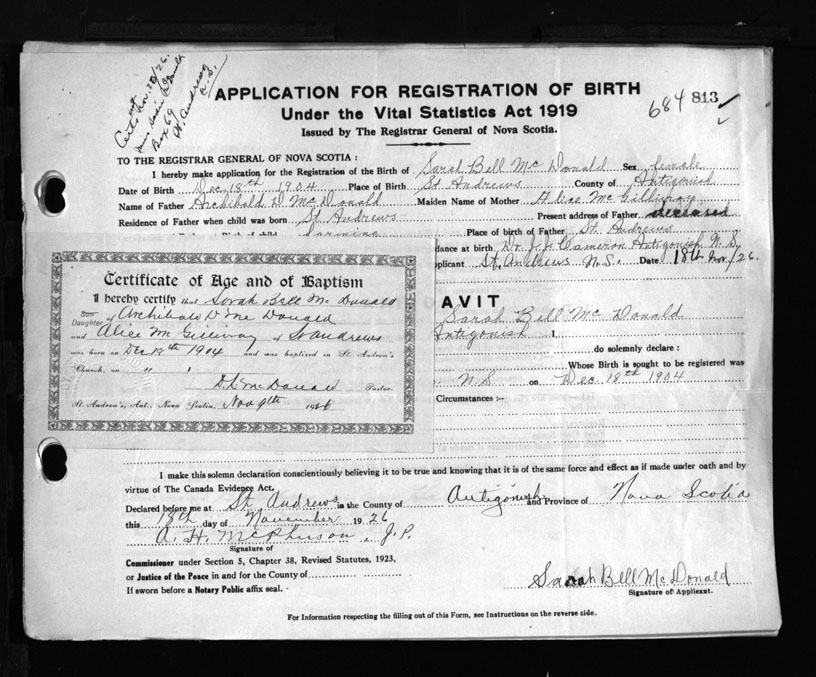 Cert. Nov. 20/26.
Box 69
St Andrews
N.S.
APPLICATION FOR REGISTRATION OF BIRTH
684 813
Under the Vital Statistics Act 1919
Issued by The Registrar General of Nova Scotia.
TO THE REGISTRAR GENERAL OF NOVA SCOTIA :
I hereby make application for the Registration of the Birth of Sarah Bell McDonald Sex female
Date of Birth Dec 18th 1904 Place of Birth St Andrews County of Antigonish
Name of Father Archibald D McDonald Maiden Name of Mother Alice McGillivray
Residence of Father when child was born St Andrews Present address of Father deceased
Place of birth of Father St. Andrews
dance at birth Dr. J. J. Cameron Antigonish N. S.
plicant St, Andrews N.S. Date 18th Nov/26.
Certificate of Age and of Baptism
I hereby certify that Sarah Bell McDonald
Son
Daughter of Archibald D McDonald
and Alice McGillivray of St Andrews
was born on Dec 18th 1904 and was baptised in St. Andrew's
Church, on " "
D L McDonald Pastor.
St. Andrew's, Ant., Nova Scotia, Nov 9th 1926
AVIT
Sarah Bell McDonald
Antigonish I,
do solemnly declare :
Whose Birth is sought to be registered was
N.S. on Dec. 18th 1904
Circumstances :-
I make this solemn declaration conscientiously believing it to be true and knowing that it is of the same force and effect as if made under oath and by
virtue of The Canada Evidence Act.
Declared before me at St. Andrews in the County of Antigonish and Province of Nova Scotia
this 18th day of November 1926
A. H. McPherson, J.P.
Signature of
Commissioner under Section 5, Chapter 38, Revised Statutes, 1923,
or Justice of the Peace in and for the County of
If sworn before a Notary Public affix seal.
Sarah Bell McDonald
Signature of Applicant.
For Information respecting the filling out of this Form, see Instructions on the reverse side.